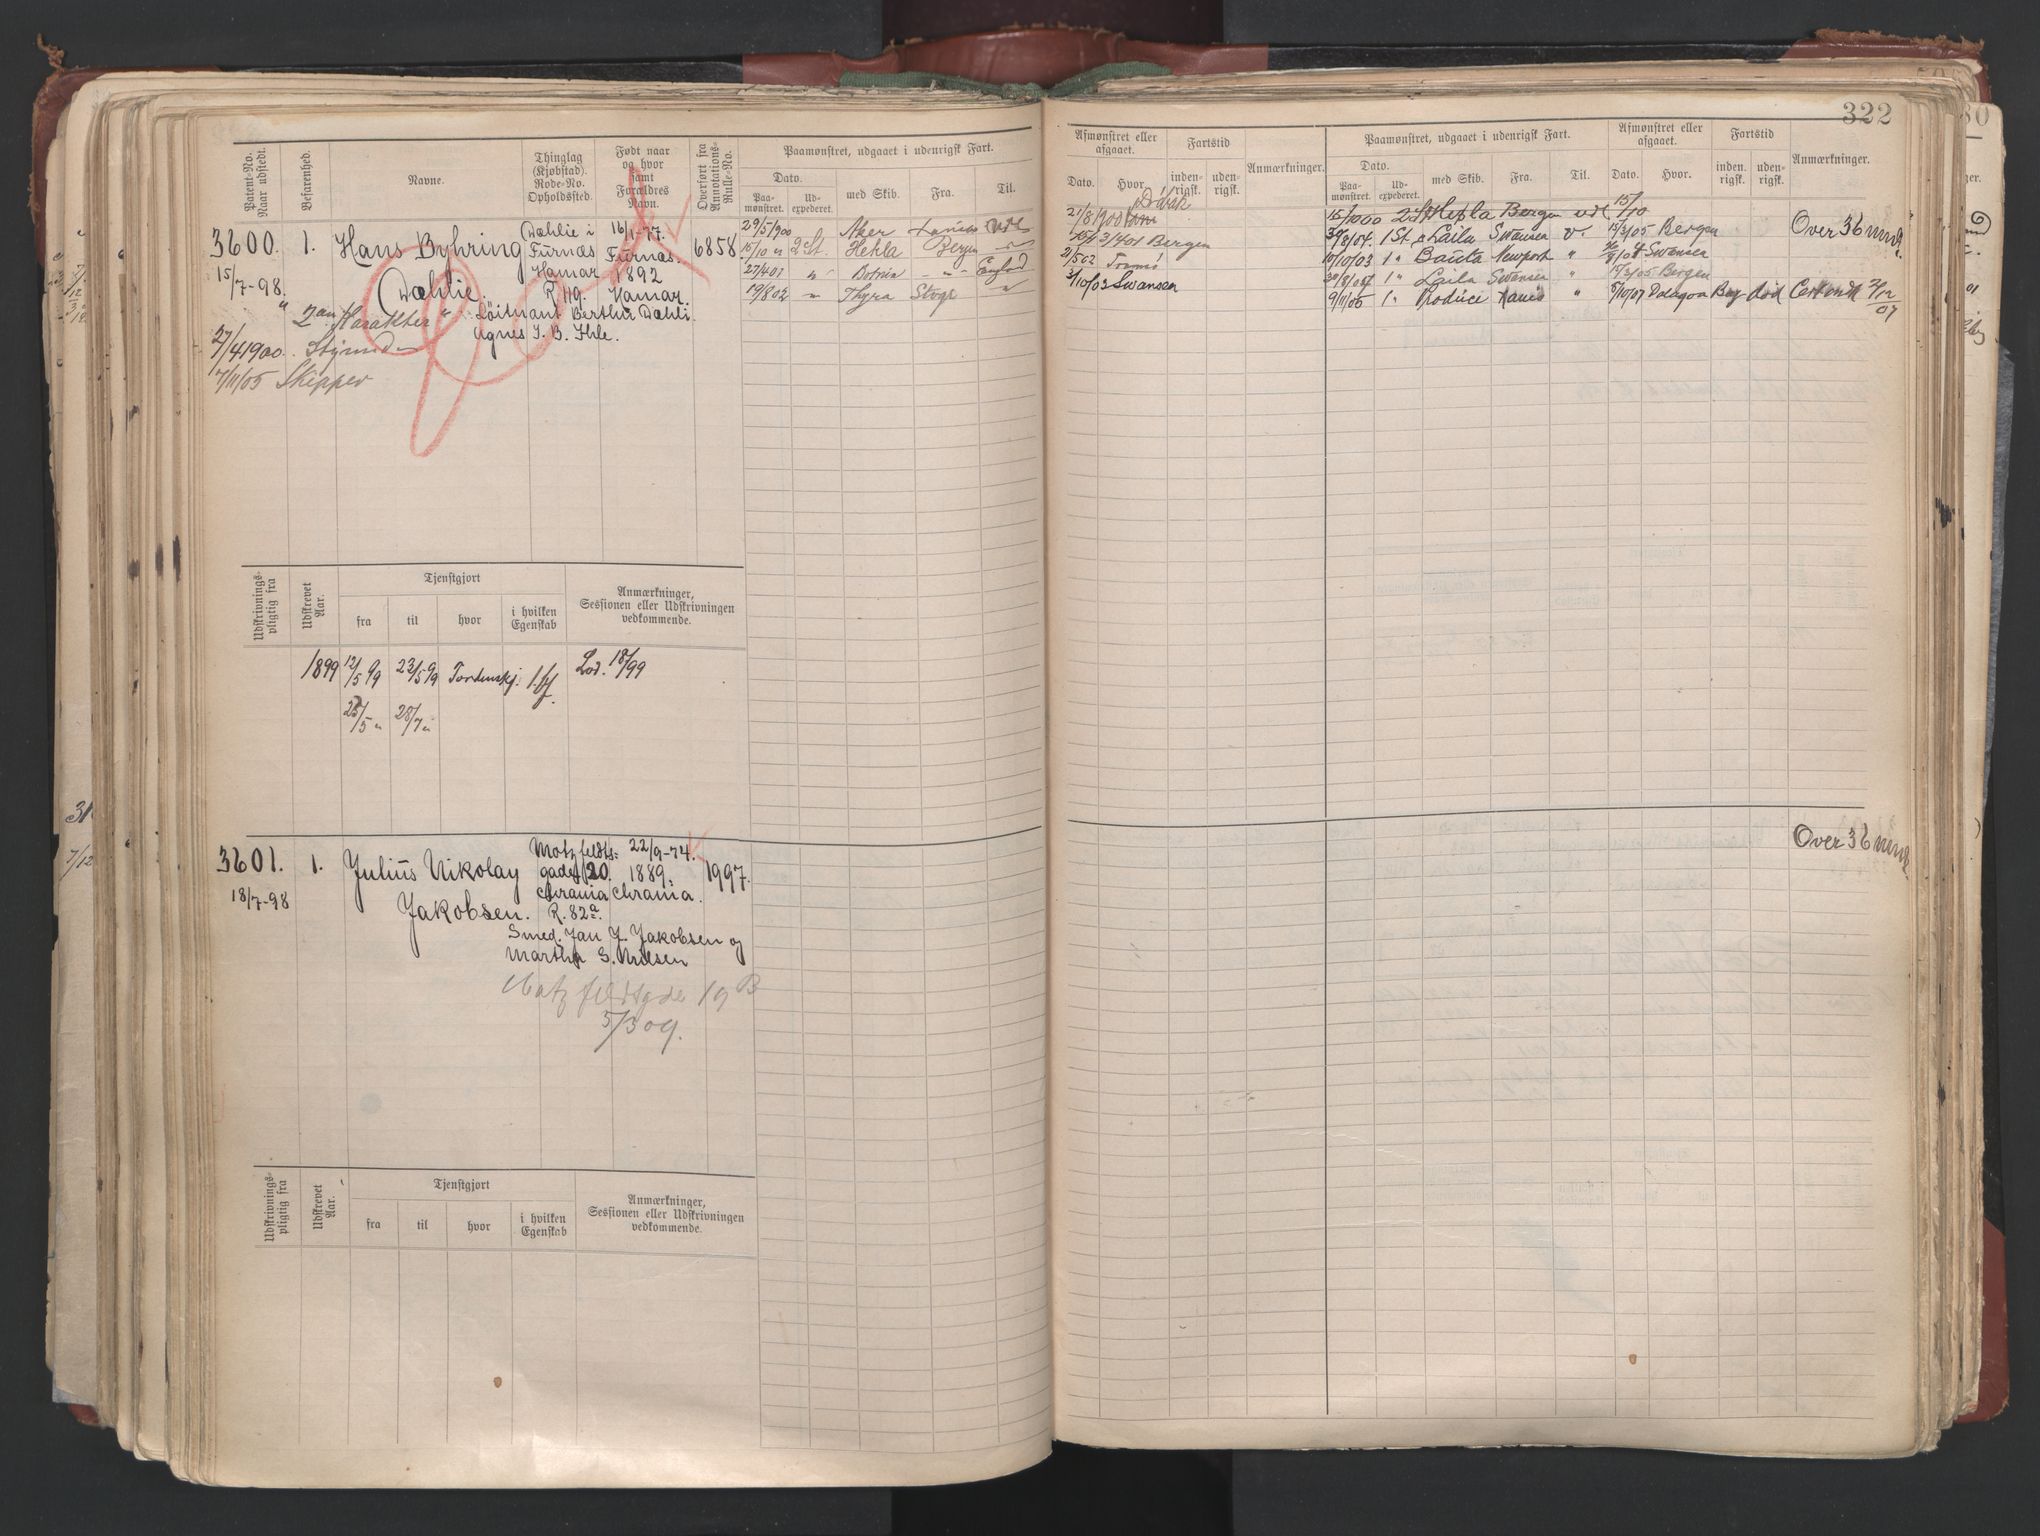 322
Patent-No. Naar udstedt.
Befarenhed.
Navne.
Thinglag (Kjøbstad). Rode-No. Opholdssted.
Født naar og hvor samt Forældres Navn.
Overført fra Annotations-Rulle-No.
Paamønstret, udgaaet i udenrigsk Fart.
Dato.
Paa-mønstret.
Ud-expederet.
med Skib.
Fra.
Til.
3600. 1. Hans Byhring Dæhlie.
15/7-98.
Dæhlie i Furnæs Hamar
16/1-77. Furnæs. 1892 Hamar.
6858
Löitnant Berthur Dæhli.
Agnes I. B. Ihle.
27/4 1900. Styrmd
7/11/05 Skipper
29/5/900 Aker
15/10 " 2 St. Hekla Bergen "
27/4 01 " Botnia " England
19/8 02 " Thyra "
Afmønstret eller afgaaet.
Dato. Hvor.
Fartstid
inden-rigsk. uden-rigsk.
Anmærkninger.
Paamønstret, udgaaet i udenrigsk Fart.
Dato.
Paa-mønstret. Ud-expederet. med Skib. Fra. Til.
Afmønstret eller afgaaet.
Dato. Hvor.
Fartstid
inden. rigsk. uden-rigsk.
Anmærkninger.
21/8 1900
15/1 2/4 01 Bergen
2/5 02 Tromsö
3/10/03 Swansea
15/10 00 2 St Hekla Bergen udl 15/10
Over 36 mndr.
30/8/04. 1 St. Laila Swansea v. 15/3/05 Bergen
10/10/03 1 " Bauta Newport " Swansea
30/8/04 1 " Laila Swansea 15/3/05 Bergen
9/11/05 1 " " 5/10/07 Dalagoa Bay död
Udskrivnings-pligtig fra
Udskrevet Aar.
Tjenstgjort
fra til hvor i hvilken Egenskab
Anmærkninger, Sessionen eller Udskrivningen vedkommende.
1899 12/5 99 23/5 99 Tordenskj.
Lod. 18/99
25/5 " 28/7 "
3601. 1. Julius Nikolay Jakobsen.
18/7-98
Motzfeldts= gade 20. Chrania R. 82 a.
22/9-74. 1889. Chrania.
1997.
Smed. Jan J. Jakobsen og
Martha S. Nilsen
Motzfeldtsgde 19 B
5/3 09.
Over 36 mndr
Udskrivnings-pligtig fra
Udskrevet Aar.
Tjenstgjort
fra til hvor i hvilken Egenskab
Anmærkninger, Sessionen eller Udskrivningen vedkommende.